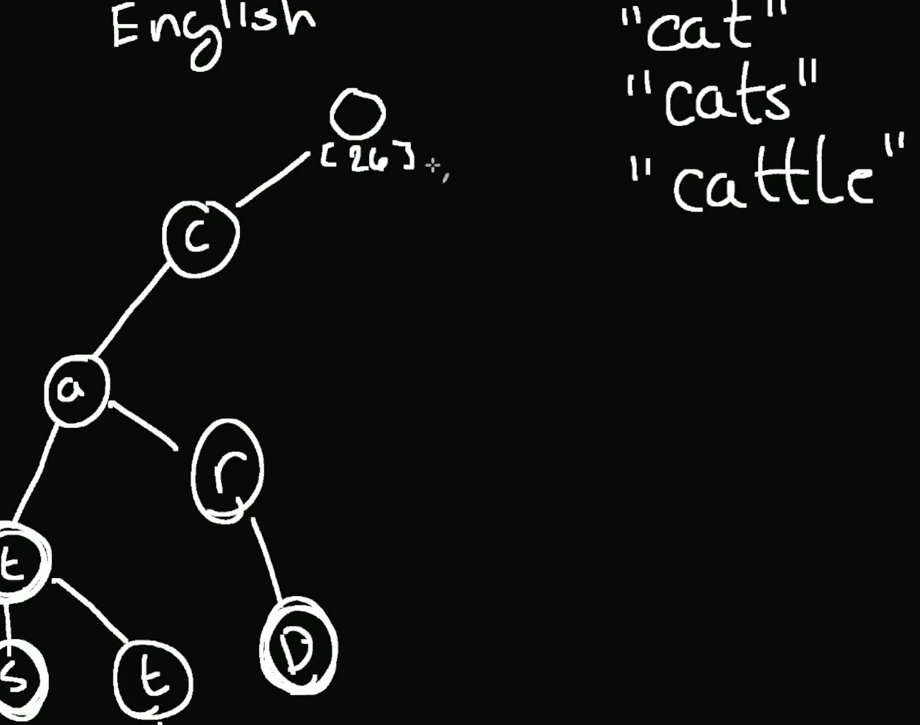 English
"cat"
"cats"
"cattle"
[26]
c
a
r
t
s
t
D